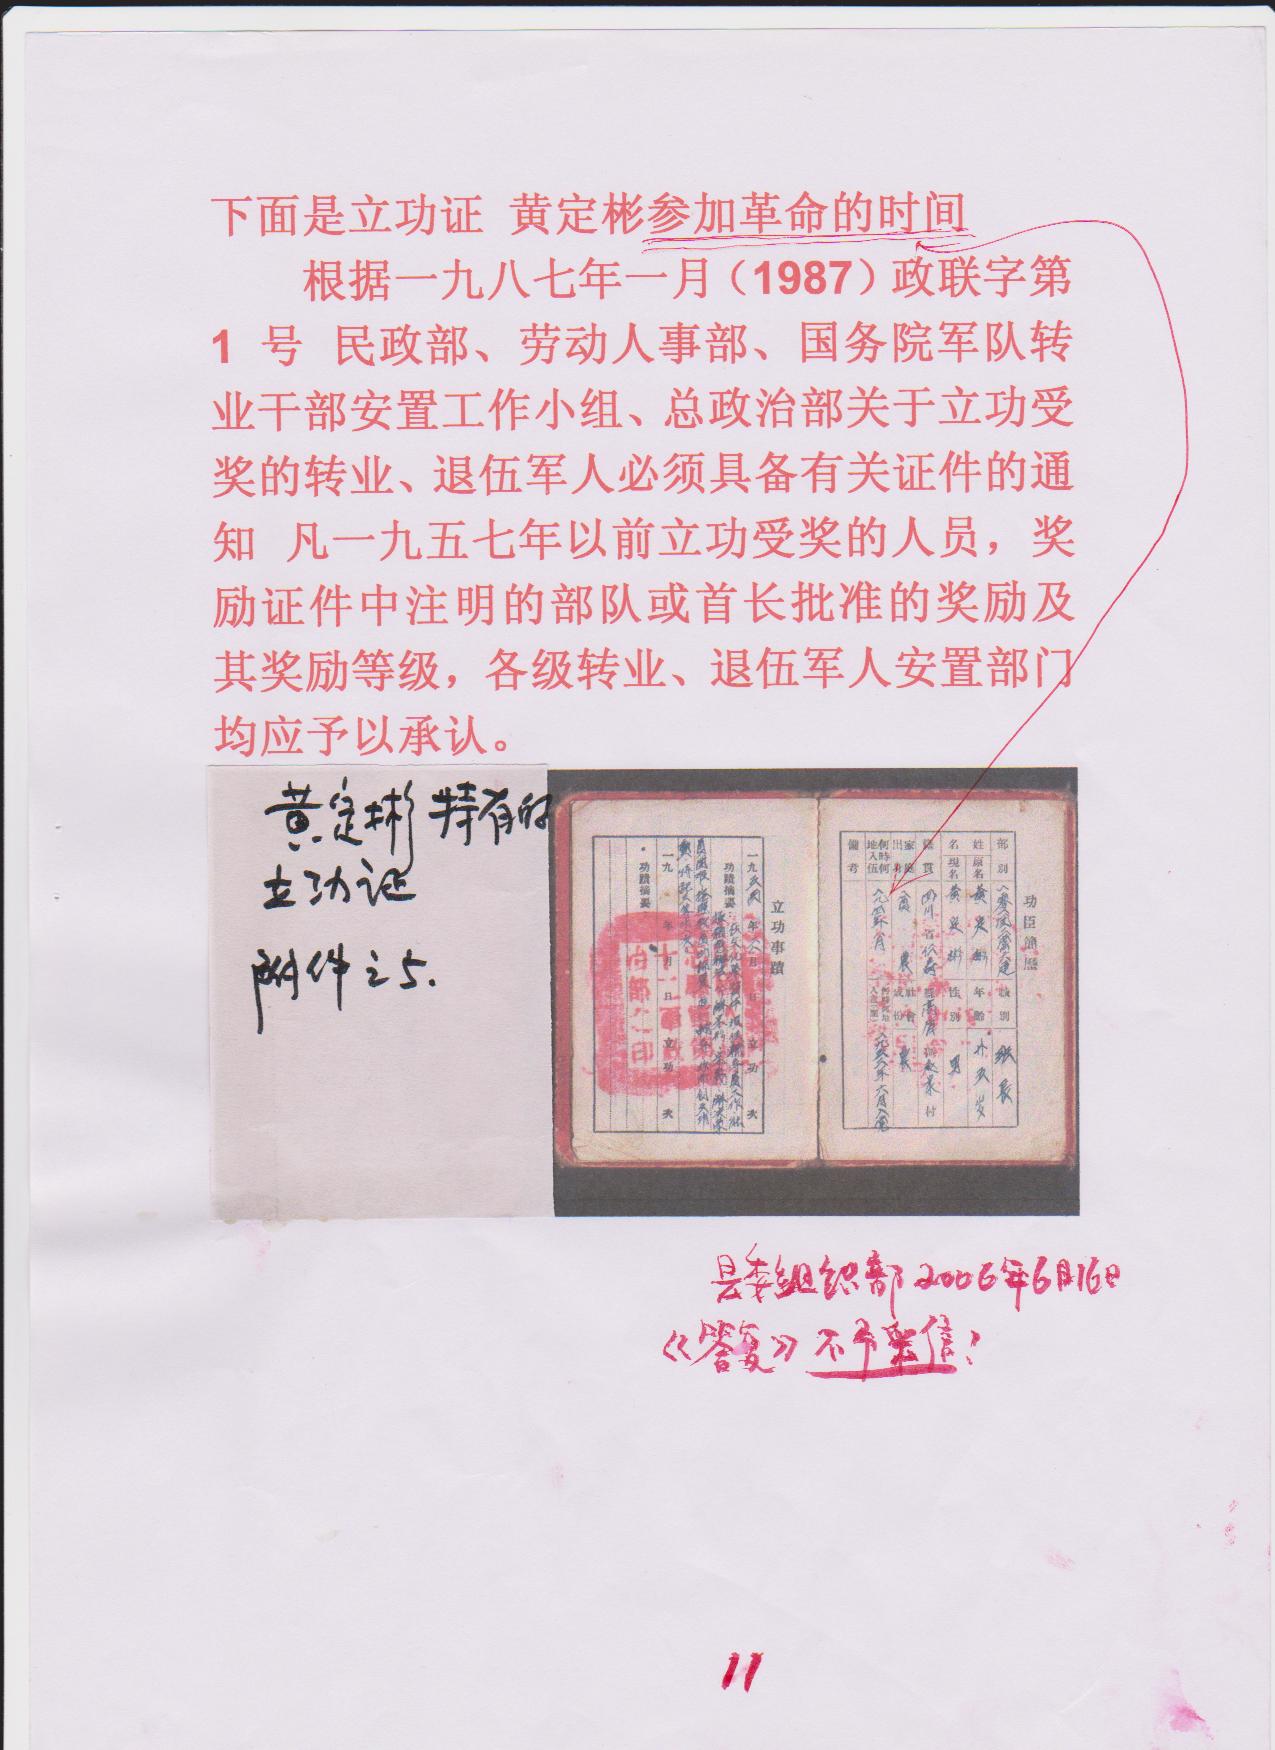 下面是立功证 黄定彬参加革命的时间
根据一九八七年一月（1987）政联字第
1 号 民政部、劳动人事部、国务院军队转
业干部安置工作小组、总政治部关于立功受
奖的转业、退伍军人必须具备有关证件的通
知 凡一九五七年以前立功受奖的人员，奖
励证件中注明的部队或首长批准的奖励及
其奖励等级，各级转业、退伍军人安置部门
均应予以承认。
黄定彬持有的
立功证
附件之5.
功臣簡歷
部別
職別
姓名
原名
現名
年齡
性別
男
籍貫
四川省
縣
村
家庭出身
社會成份
何時何地入伍
備考
立功事蹟
一九
年
月
日
立功
次
功蹟摘要
一九
年
月
日
立功
次
功蹟摘要
县委组织部2006年6月16日
《答复》不予采信？
11